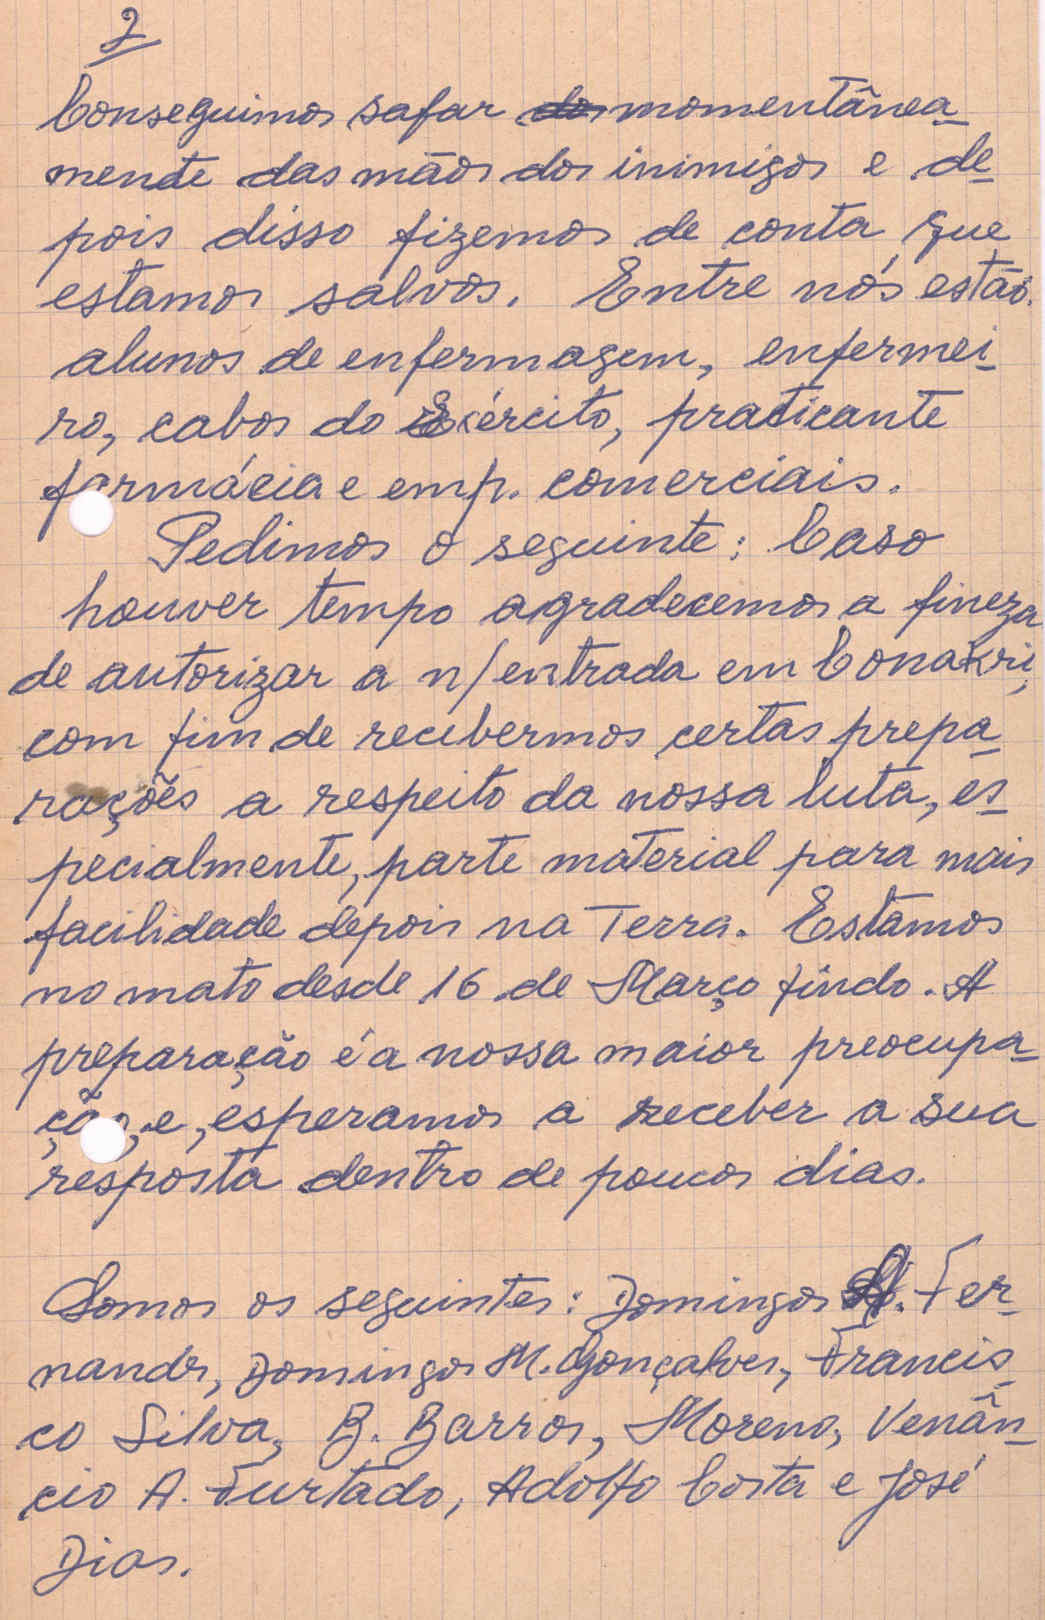 2
Conseguimos safar dos momentânea-
mente das mãos dos inimigos e de-
pois disso fizemos de conta que
estamos salvos. Entre nós estão
alunos de enfermagem, enfermei-
ro, cabos do Exército, praticante
farmácia e emp. comerciais.
Pedimos o seguinte: Caso
houver tempo agradecemos a fineza
de autorizar a n/entrada em Conakri,
com fim de recebermos certas prepa-
rações a respeito da nossa luta, es-
pecialmente, parte material para mais
facilidade depois na Terra. Estamos
no mato desde 16 de Março findo. A
preparação é a nossa maior preocupa-
ção, e, esperamos a receber a sua
resposta dentro de poucos dias.
Somos os seguintes: Domingos A. Fer-
nands, Domingos M. Gonçalves, Francis-
co Silva, B. Barros, Moreno, Venân-
cio A. Furtado, Adolfo Costa e José
Dias.